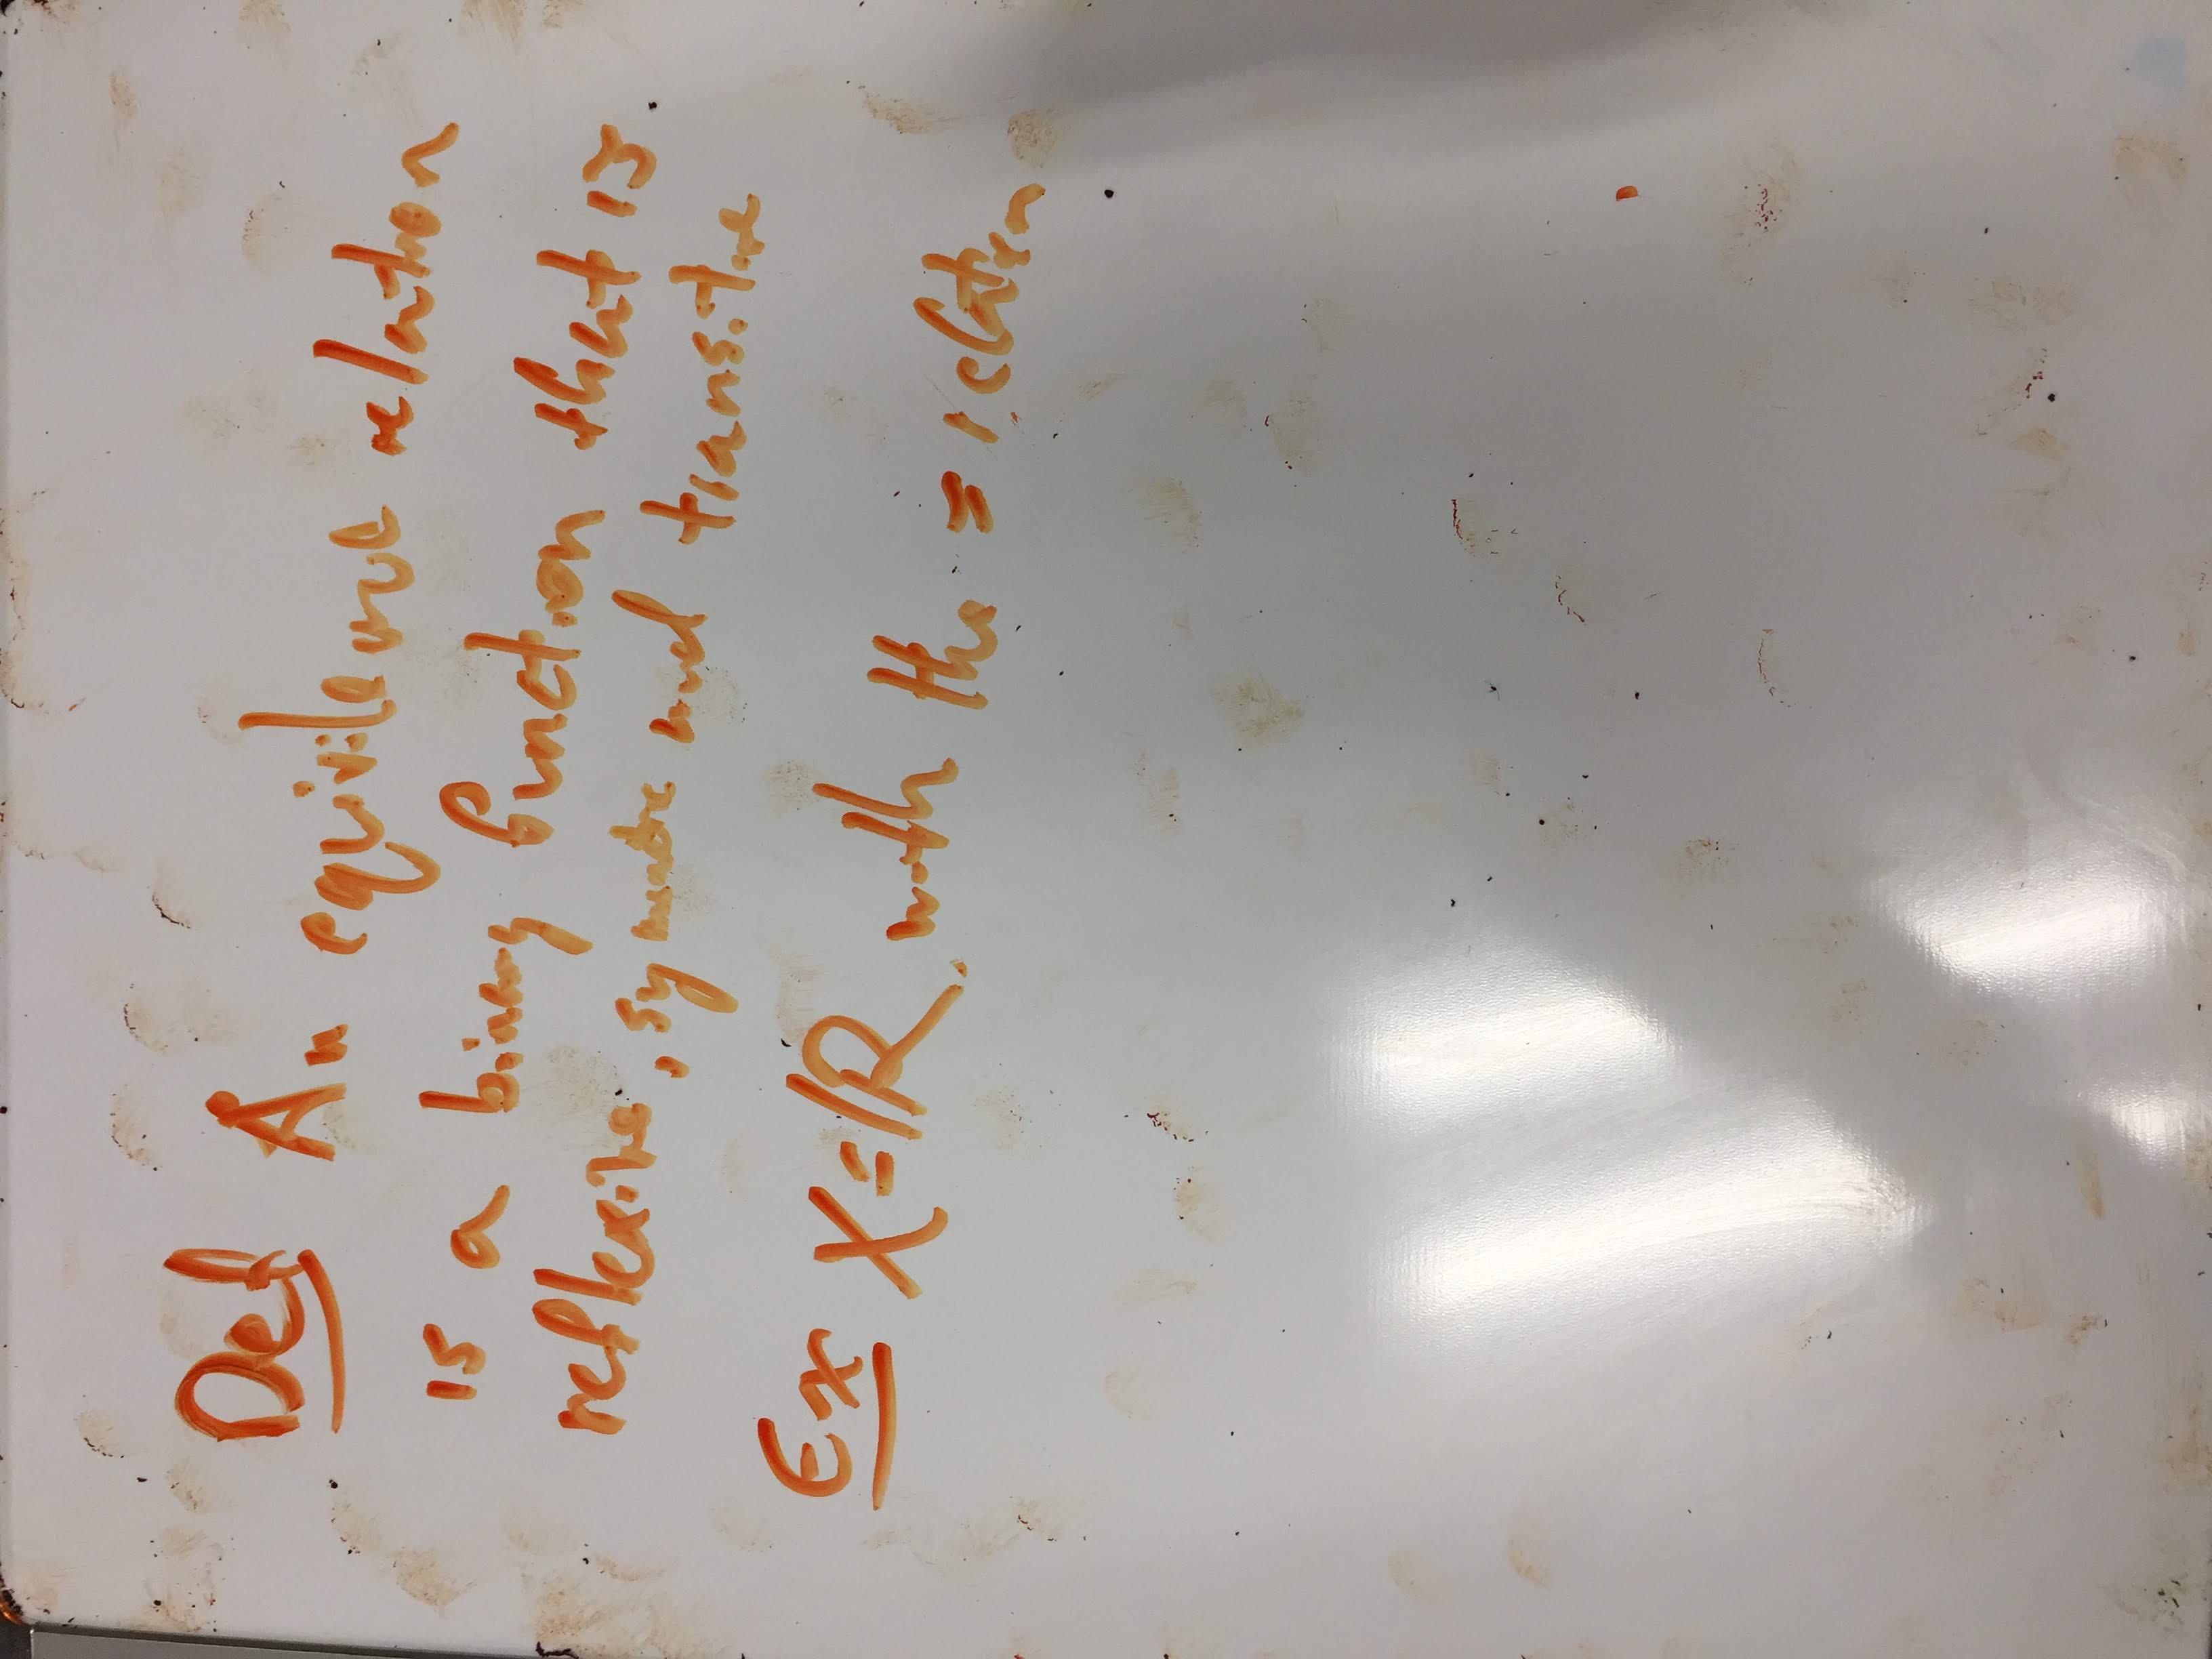 Def An equivilence relation
is a binary function that is
reflexive, symmetric and transitive
Ex X=ℝ with the = relation